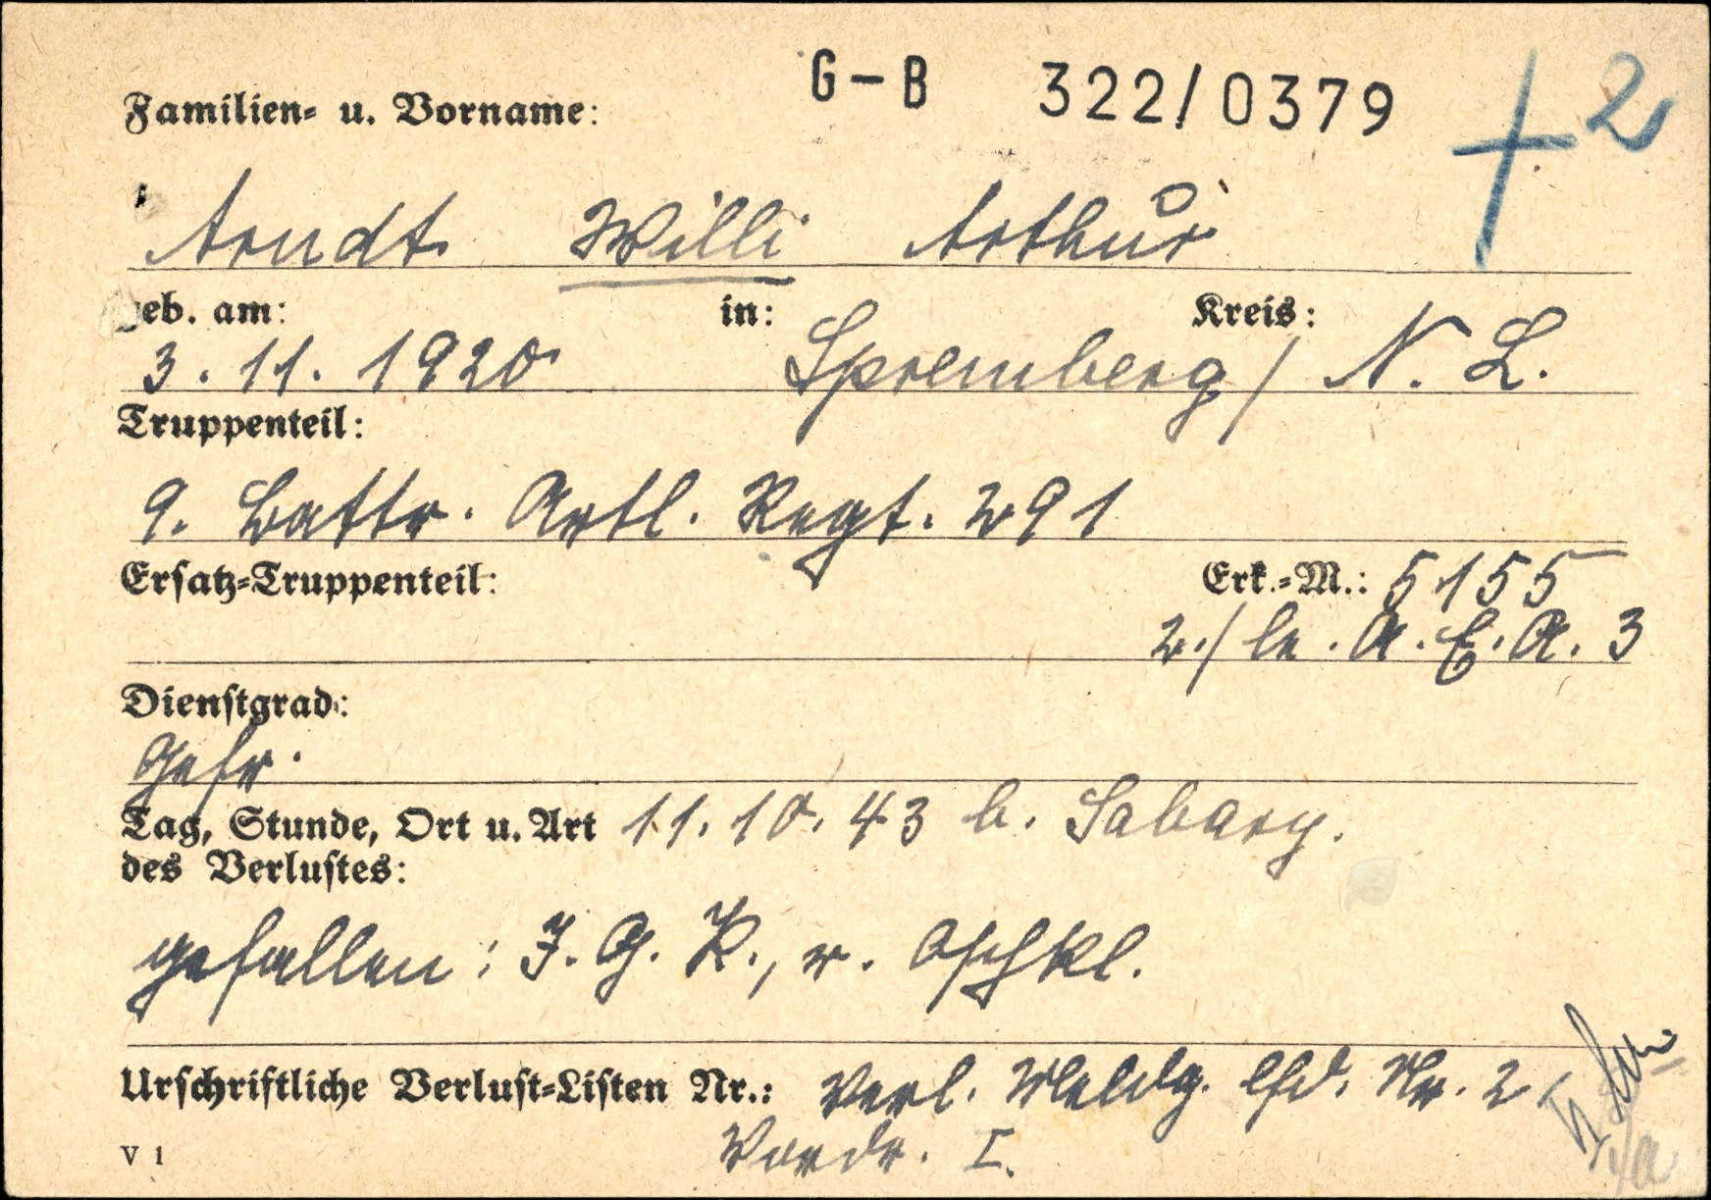 G-B 322/0379 + 2
Familien- u. Vorname:
Arndt Willi Arthur
geb. am: in: Kreis:
3.11.1920 Spremberg / N. L.
Truppenteil:
9. Battr. Artl. Regt. 291
Ersatz-Truppenteil: Erk.-M.: 5155
2./ le. A. E. A. 3
Dienstgrad:
Gefr.
Tag, Stunde, Ort u. Art 11.10.43 b. Sabary.
des Verlustes:
gefallen: I. G. K., r. Oschkl.
Urschriftliche Verlust-Listen Nr.: Verl. Meldg. lfd. Nr. 2,
Vordr. I.
V 1